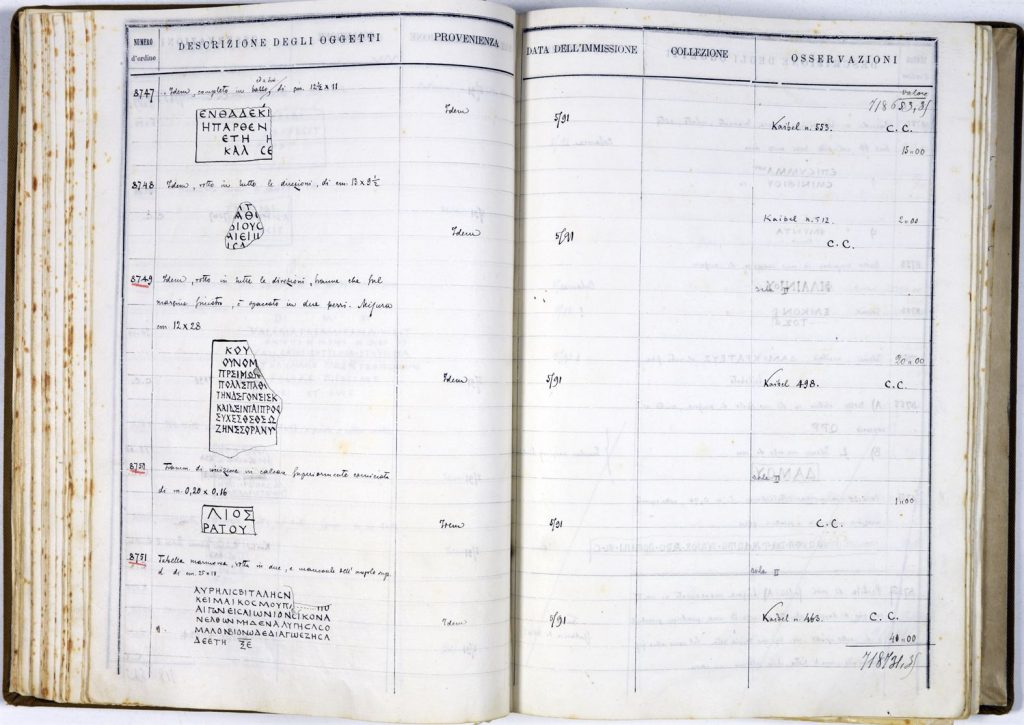 NUMERO d'ordine
DESCRIZIONE DEGLI OGGETTI
PROVENIENZA
DATA DELL'IMMISSIONE
COLLEZIONE
OSSERVAZIONI
valore
718693,35
8747
Idem, completo in basso, di cm. 12½ x 11
ΕΝΘΑΔΕΚΙ
ΗΠΑΡΘΕΝ
ΕΤΗ Η
ΚΑΛ ϹΕ
Idem
5/91
Kaibel n. 553.
C. C.
15.00
8748
Idem, rotto in tutte le direzioni, di cm. 13 x 9½
ΙΤ
ΑΘΙ
ΔΙΟΥϹ
ΑΙΕΙΙ
Idem
5/91
Kaibel n. 512.
2.00
C. C.
8749
Idem, rotto in tutte le direzioni, tranne che sul
margine sinistro, è spaccato in due pezzi. Misura
cm. 12 x 28
ΚΟΥ
ΟΥΝΟΜ
ΠΡΕΙΜΩ
ΠΟΛΛΕΠΑΘ
ΤΗΝΔΣΓΟΝΕΙΣΚ
ΚΑΙΔΣΙΝΤΑΙΠΡΟΣ
ΣΥΧΕΣΘΣΘΣΩ
ΖΗΝΣΣΟΡΑΝΥ
Idem
5/91
sala II
20.00
Kaibel 498.
C. C.
8750
di iscrizione in calcare superiormente corniciata
di m. 0,20 x 0,16
ΛΙΟΣ
ΡΑΤΟΥ
Idem
5/91
sala II
1.00
C. C.
8751
Tabella marmorea, rotta in due, e mancante dell'angolo sup.
d. di cm. 25 x 18.
ΑΥΡΗΛΙϹΒΙΤΑΛΗϹΝ
ΚΕΙΜΑΙΚΟϹΜΟΥΠ
ΑΙΓΩΝΕΙϹΑΙΩΝΙΟΝΕΙΚΟΝΑ
ΝΕΛΘΩΝΜΗΔΕΝΑΛΥΠΗϹΑϹΟ
ΜΑΛΟΝΕΙΟΝΩΔΕΔΙΑΓΩΕΖΗϹΑ
ΔΕΕΤΗ ΞΕ
Idem
5/91
sala II
Kaibel n. 463.
C. C.
40.00
718731,35